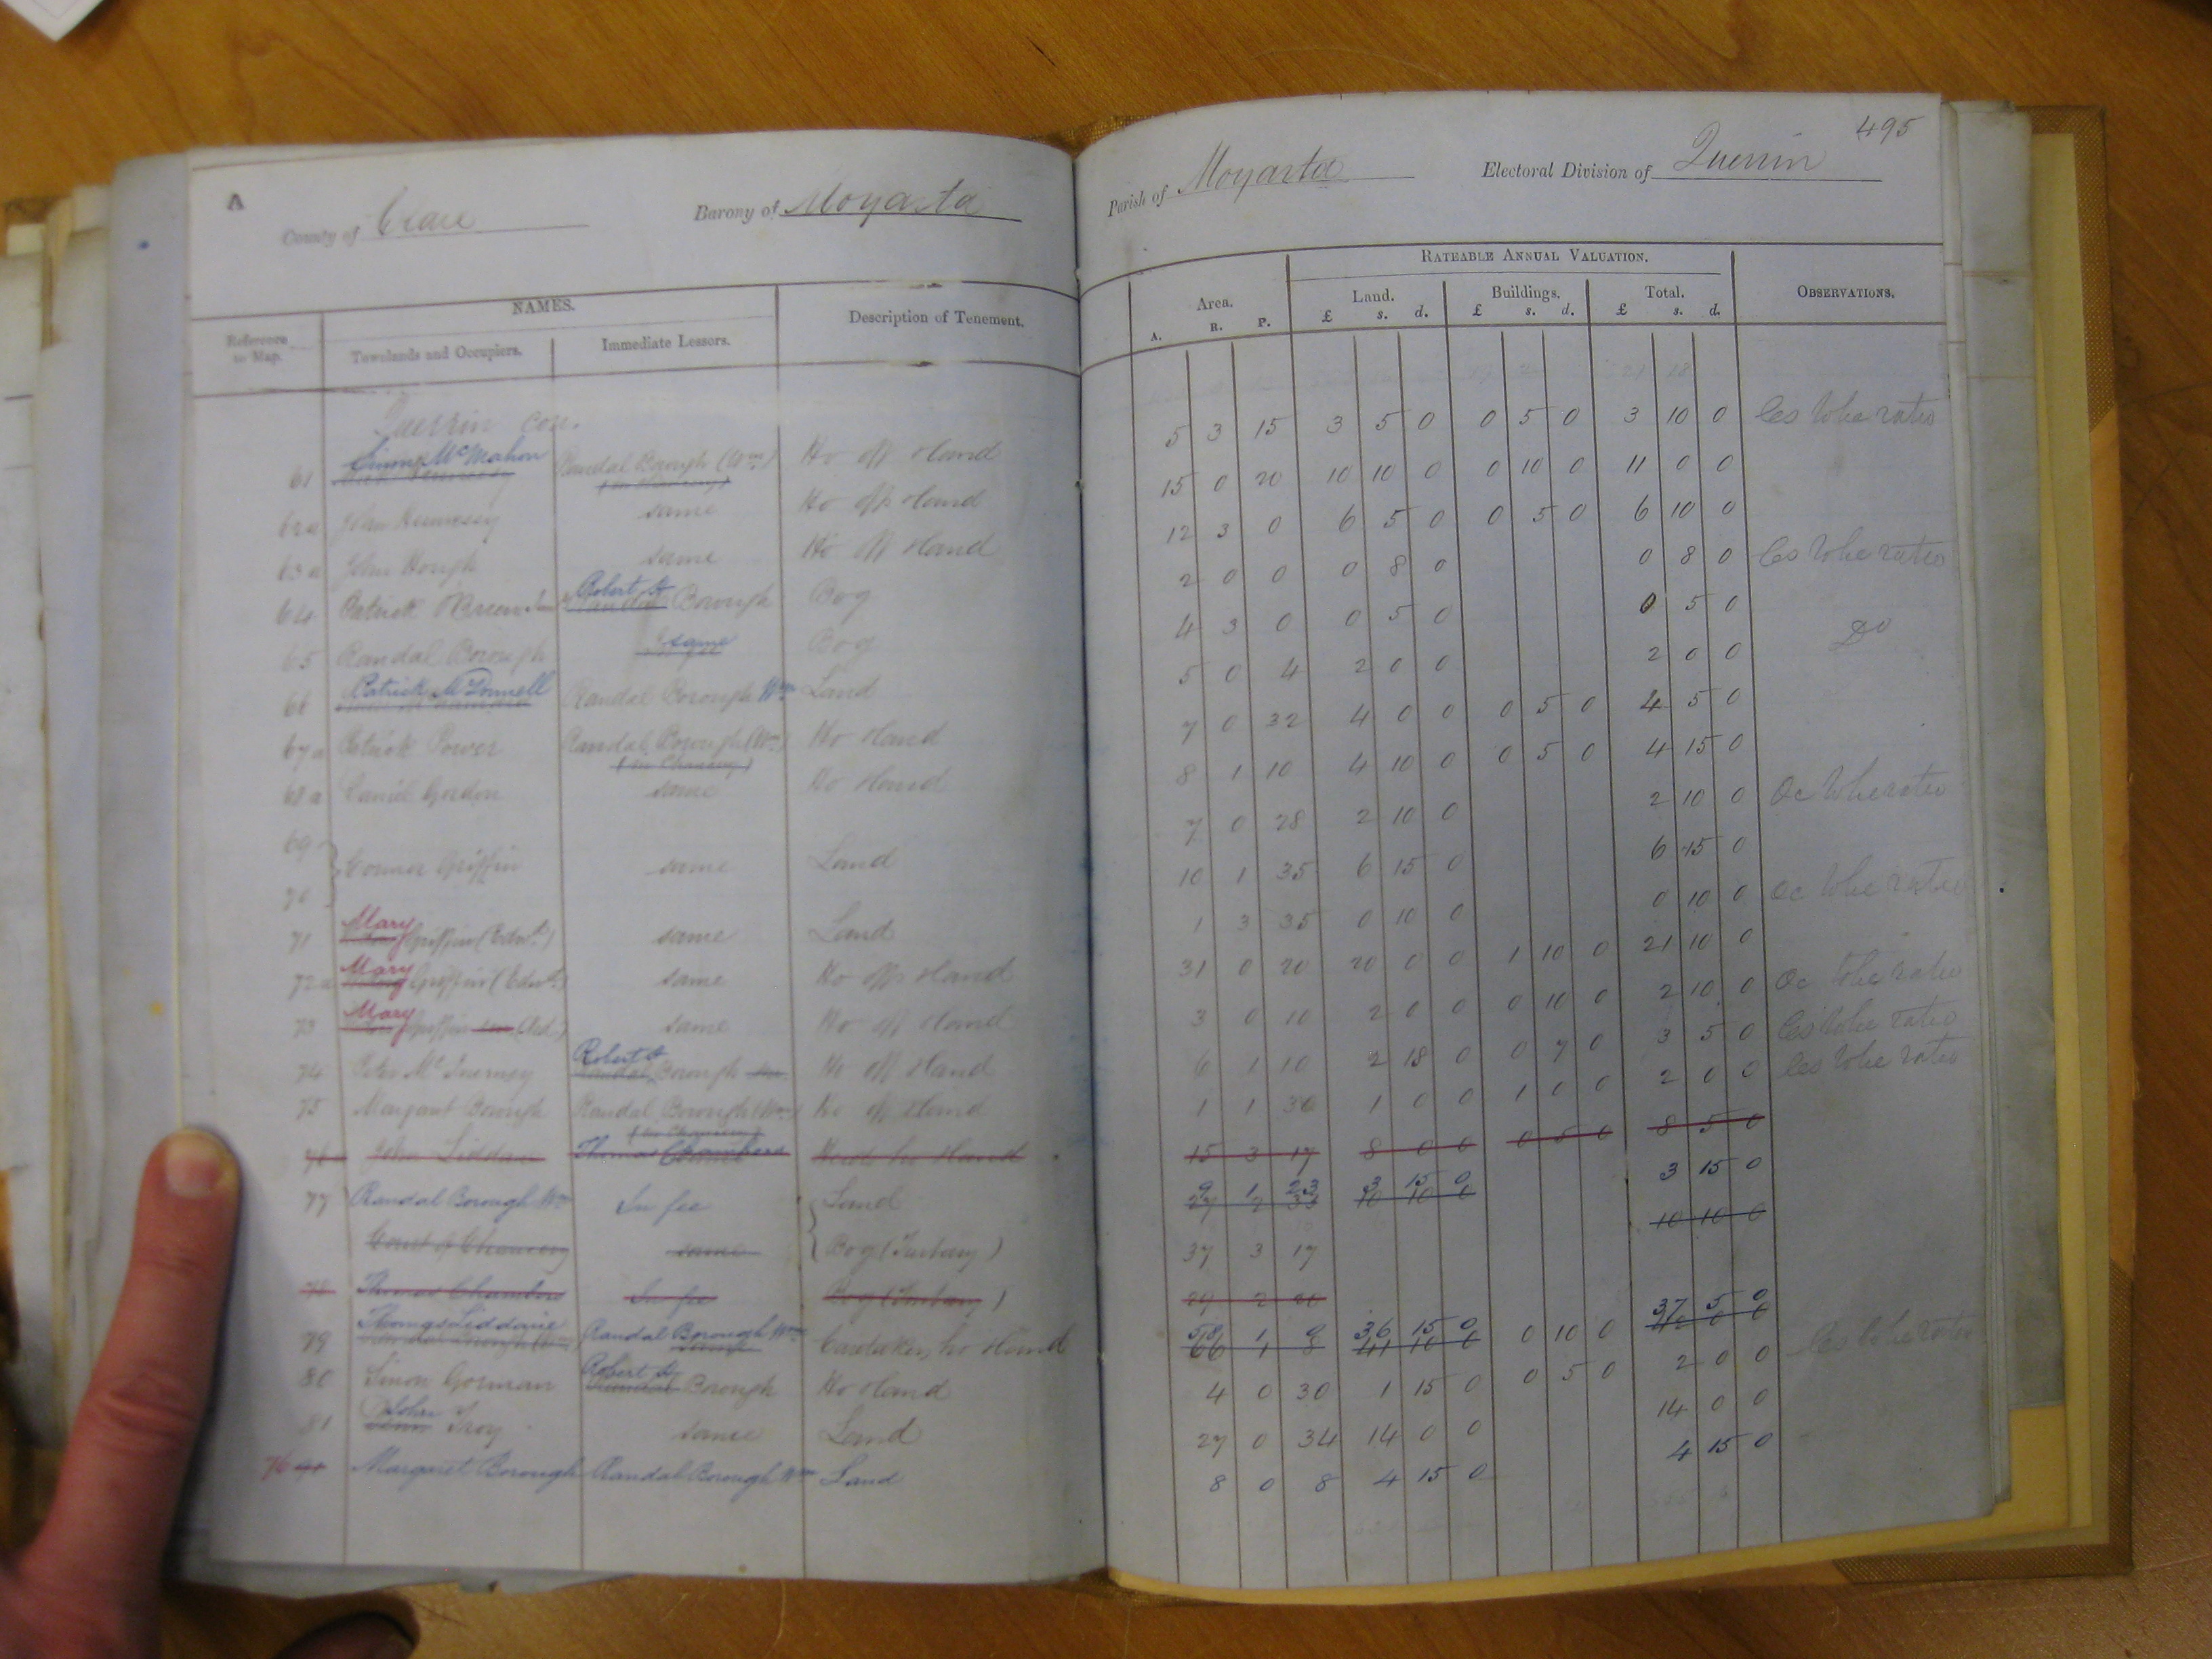 A
County of Clare Barony of Moyarta
NAMES.
Reference to Map. Townlands and Occupiers. Immediate Lessors. Description of Tenement.
Querrin con.
61 McMahon Randal Borough (Wm) Ho off & land
62a John Hennessy same Ho off & land
63a John Hough same Ho off & land
64 Patrick O'Brien Robert Borough Bog
65 Randal Borough same Bog
66 Patrick McDonnell Randal Borough Wm Land
67a Patrick Power Randal Borough (Wm) Ho & land
(In Chancery)
68a Daniel Gordon same Ho & land
69
70 Connor Griffin same Land
71 Mary Griffin (Edwd) same Land
72a Mary Griffin (Edwd) same Ho off & land
73 Mary Griffin same Ho off & land
74 Peter McInerney Robert Borough Ho off & land
75 Margaret Borough Randal Borough (Wm) Ho off & land
(In Chancery)
76 John Liddane Thomas & land
77 Randal Borough Wm In fee Land
Court of Chancery same Bog (Turbary)
78 Thomas Chambers In fee Bog (Turbary)
79 Thomas Liddane Randal Borough Wm Caretakers ho & land
80 Simon Gorman Robert Borough Ho & land
81 John Troy same Land
76 Margaret Borough Randal Borough Wm Land
495
Parish of Moyarta Electoral Division of Querrin
RATEABLE ANNUAL VALUATION.
Area. Land. Buildings. Total. OBSERVATIONS.
A. R. P. £ s. d. £ s. d. £ s. d.
5 3 15 3 5 0 0 5 0 3 10 0
15 0 20 10 10 0 0 10 0 11 0 0
12 3 0 6 5 0 0 5 0 6 10 0
2 0 0 0 8 0 0 8 0
4 3 0 0 5 0 0 5 0 Do
5 0 4 2 0 0 2 0 0
7 0 32 4 0 0 0 5 0 4 5 0
8 1 10 4 10 0 0 5 0 4 15 0
7 0 28 2 10 0 2 10 0
10 1 35 6 15 0 6 15 0
1 3 35 0 10 0 0 10 0
31 0 20 20 0 0 1 10 0 21 10 0
3 0 10 2 0 0 0 10 0 2 10 0
6 1 10 2 18 0 0 7 0 3 5 0
1 1 36 1 0 0 1 0 0 2 0 0
15 3 17 8 0 0 0 5 0 8 5 0
9 1 23 3 15 0 3 15 0
27 2 33 10 10 0 10 10 0
37 3 17
29 2 20
58 1 9 36 15 0 0 10 0 37 5 0
66 1 8 41 10 0 42 0 0
4 0 30 1 15 0 0 5 0 2 0 0
27 0 34 14 0 0 14 0 0
8 0 8 4 15 0 4 15 0